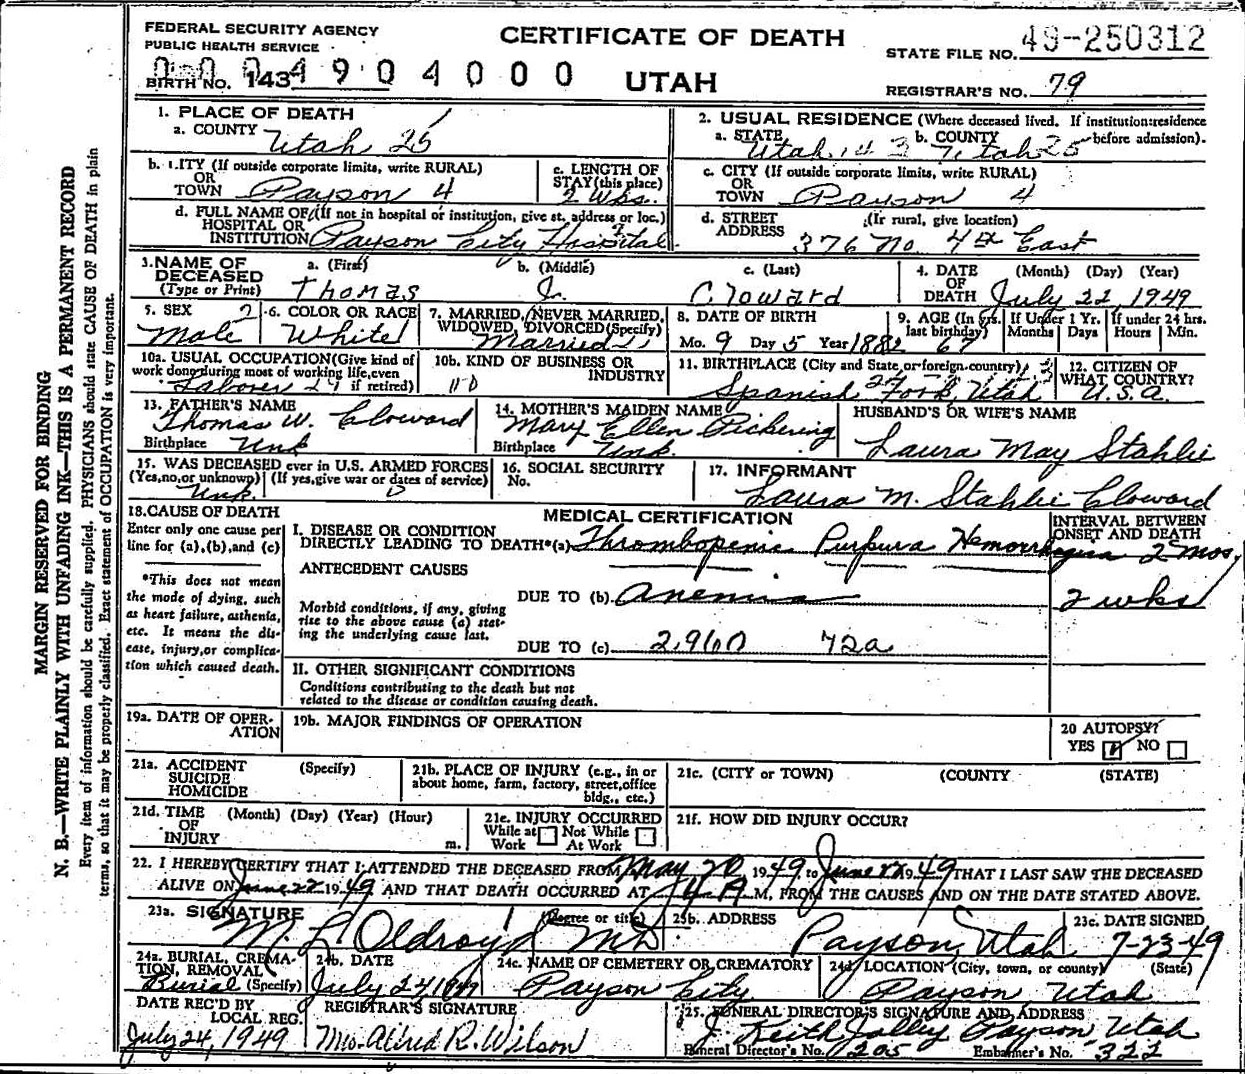 FEDERAL SECURITY AGENCY
PUBLIC HEALTH SERVICE
CERTIFICATE OF DEATH
STATE FILE NO. 49-250312
BIRTH NO. 143
4904000
UTAH
REGISTRAR'S NO. 79
1. PLACE OF DEATH
a. COUNTY Utah 25
2. USUAL RESIDENCE (Where deceased lived. If institution:residence before admission).
a. STATE Utah 143 b. COUNTY Utah 25
b. CITY (If outside corporate limits, write RURAL) OR TOWN Payson 4
c. LENGTH OF STAY (this place) 2 Wks.
c. CITY (If outside corporate limits, write RURAL) OR TOWN Payson 4
d. FULL NAME OF (If not in hospital or institution, give st. address or loc.) HOSPITAL OR INSTITUTION Payson City Hospital
d. STREET ADDRESS (If rural, give location) 376 No. 4th East
3. NAME OF DECEASED (Type or Print)
a. (First) Thomas b. (Middle) J. c. (Last) Cloward
4. DATE OF DEATH (Month) (Day) (Year) July 22, 1949
5. SEX Male
6. COLOR OR RACE White
7. MARRIED, NEVER MARRIED, WIDOWED, DIVORCED (Specify) Married 1
8. DATE OF BIRTH Mo. 9 Day 5 Year 1882
9. AGE (In yrs. last birthday) 67
If Under 1 Yr. Months Days
If under 24 hrs. Hours Min.
10a. USUAL OCCUPATION (Give kind of work done during most of working life, even if retired) Laborer
10b. KIND OF BUSINESS OR INDUSTRY
11. BIRTHPLACE (City and State, or foreign country) Spanish Fork, Utah
12. CITIZEN OF WHAT COUNTRY? U.S.A.
13. FATHER'S NAME Thomas W. Cloward
Birthplace Unk
14. MOTHER'S MAIDEN NAME Mary Ellen Pickering
Birthplace Unk.
HUSBAND'S OR WIFE'S NAME Laura May Stahlie
15. WAS DECEASED ever in U.S. ARMED FORCES (Yes, no, or unknown) (If yes, give war or dates of service) Unk.
16. SOCIAL SECURITY No.
17. INFORMANT Laura M. Stahlie Cloward
18. CAUSE OF DEATH
Enter only one cause per line for (a), (b), and (c)
*This does not mean the mode of dying, such as heart failure, asthenia, etc. It means the disease, injury, or complication which caused death.
MEDICAL CERTIFICATION
INTERVAL BETWEEN ONSET AND DEATH
I. DISEASE OR CONDITION DIRECTLY LEADING TO DEATH*(a) Thrombopenia Purpura Hemorrhagica 2 mos.
ANTECEDENT CAUSES
Morbid conditions, if any, giving rise to the above cause (a) stating the underlying cause last.
DUE TO (b) Anemia 2 wks
DUE TO (c) 2960 72a
II. OTHER SIGNIFICANT CONDITIONS
Conditions contributing to the death but not related to the disease or condition causing death.
19a. DATE OF OPERATION
19b. MAJOR FINDINGS OF OPERATION
20 AUTOPSY?
YES NO
21a. ACCIDENT SUICIDE HOMICIDE (Specify)
21b. PLACE OF INJURY (e.g., in or about home, farm, factory, street, office bldg., etc.)
21c. (CITY or TOWN) (COUNTY) (STATE)
21d. TIME OF INJURY (Month) (Day) (Year) (Hour) m.
21e. INJURY OCCURRED While at Work Not While At Work
21f. HOW DID INJURY OCCUR?
22. I HEREBY CERTIFY THAT I ATTENDED THE DECEASED FROM May 20 1949 to June 22 1949 THAT I LAST SAW THE DECEASED
ALIVE ON June 22 1949 AND THAT DEATH OCCURRED AT 4 A M., FROM THE CAUSES AND ON THE DATE STATED ABOVE.
23a. SIGNATURE (Degree or title) M. L. Oldroyd MD
23b. ADDRESS Payson, Utah
23c. DATE SIGNED 7-23-49
24a. BURIAL, CREMATION, REMOVAL (Specify) Burial
24b. DATE July 24, 1949
24c. NAME OF CEMETERY OR CREMATORY Payson City
24d. LOCATION (City, town, or county) (State) Payson, Utah
DATE REC'D BY LOCAL REG. July 24, 1949
REGISTRAR'S SIGNATURE Mrs. Alfred R. Wilson
25. FUNERAL DIRECTOR'S SIGNATURE AND ADDRESS J. Keith Jolley Payson, Utah
Funeral Director's No. 205 Embalmer's No. 322
MARGIN RESERVED FOR BINDING
N. B.—WRITE PLAINLY WITH UNFADING INK—THIS IS A PERMANENT RECORD
Every item of information should be carefully supplied. PHYSICIANS should state CAUSE OF DEATH in plain
terms, so that it may be properly classified. Exact statement of OCCUPATION is very important.